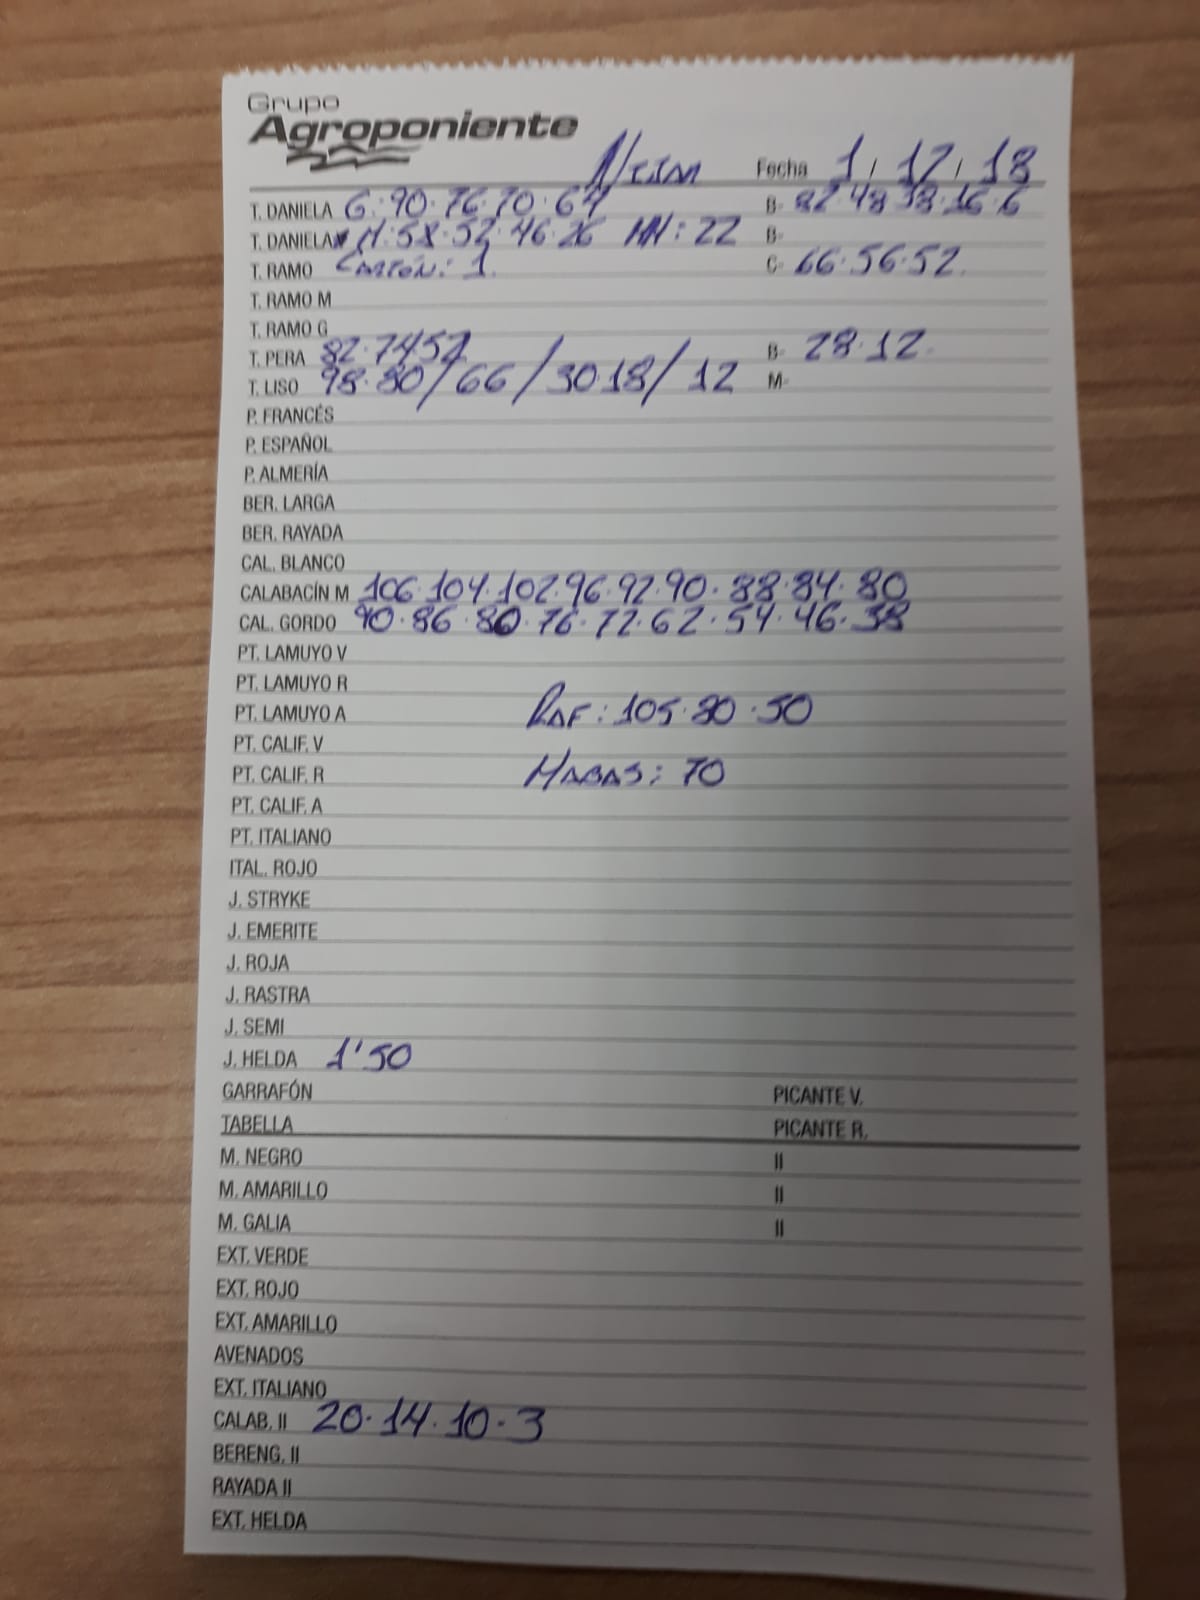 Grupo
Agroponiente
Fecha 1/12/18
T. DANELA G: 90·76·70·64 B- 82·48·38·16·6
T. DANIELA M: 58·52·46·26 MM: 22 B-
T. RAMO CARTÓN: 1. C- 66·56·52.
T. RAMO M
T. RAMO G
T. PERA 82·74 52 B- 28·12.
T. LISO 98·80/66/30 18/12 M-
P. FRANCÉS
P. ESPAÑOL
P. ALMERÍA
BER. LARGA
BER. RAYADA
CAL. BLANCO
CALABACÍN M 106·104·102·96·92·90·88·84·80
CAL. GORDO 90·86·80·76·72·62·54·46·38
PT. LAMUYO V
PT. LAMUYO R
PT. LAMUYO A RAF: 105·80·50
PT. CALIF. V
PT. CALIF. R HABAS: 70
PT. CALIF. A
PT. ITALIANO
ITAL. ROJO
J. STRYKE
J. EMERITE
J. ROJA
J. RASTRA
J. SEMI
J. HELDA 1'50
GARRAFÓN PICANTE V.
TABELLA PICANTE R.
M. NEGRO II
M. AMARILLO II
M. GALIA II
EXT. VERDE
EXT. ROJO
EXT. AMARILLO
AVENADOS
EXT. ITALIANO
CALAB. II 20·14·10·3
BERENG. II
RAYADA II
EXT. HELDA